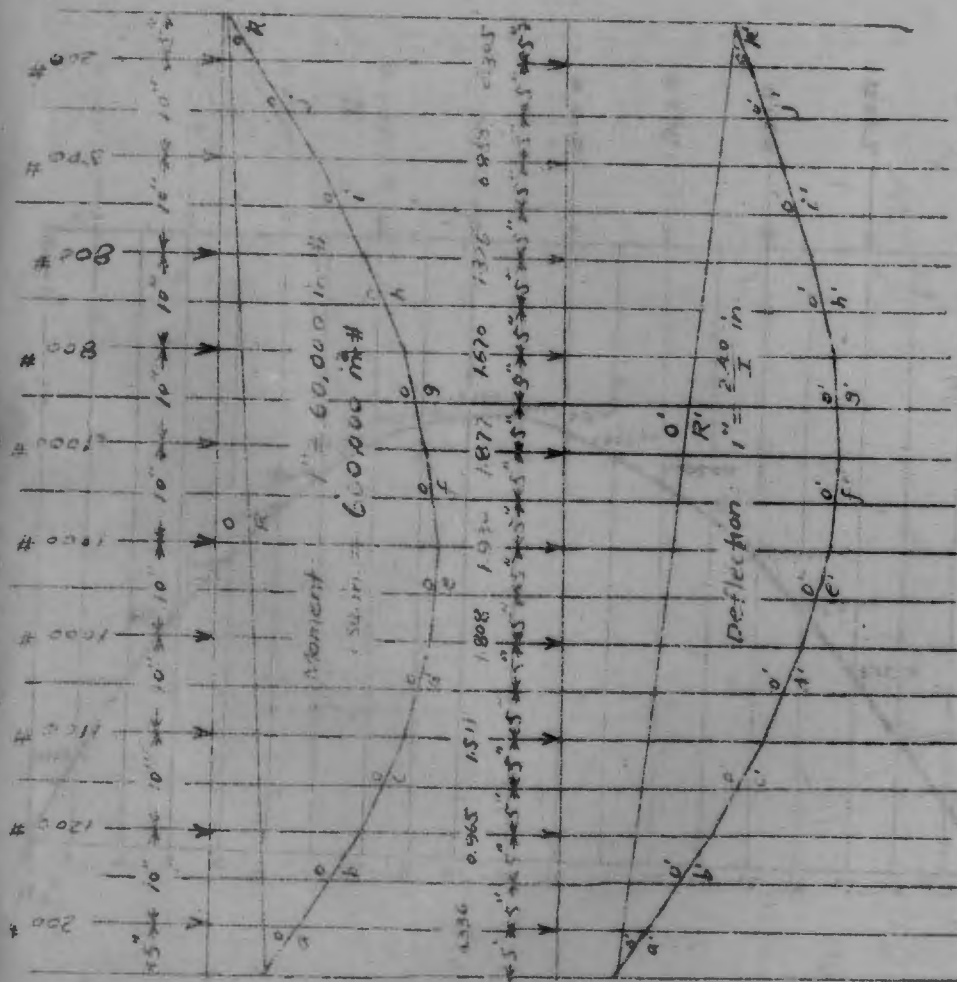 200 # 1200 # 1100 # 1000 # 1000 # 1000 # 800 # 800 # 500 # 200 #
5" 10" 10" 10" 10" 10" 10" 10" 10" 10" 5"
O R
Moment 1" = 60,000 in #
1 sq. in = 600,000 in² #
o a o b o c o d o e o f o g o h o i o j o k
0.336 0.965 1.511 1.808 1.930 1.877 1.670 1.326 0.858 0.305
5" 5" 5" 5" 5" 5" 5" 5" 5" 5" 5" 5" 5" 5" 5" 5" 5" 5" 5" 5"
O' R'
Deflection 1" = 2.40 / I in
o' a' o' b' o' c' o' d' o' e' o' f' o' g' o' h' o' i' o' j' o' k'